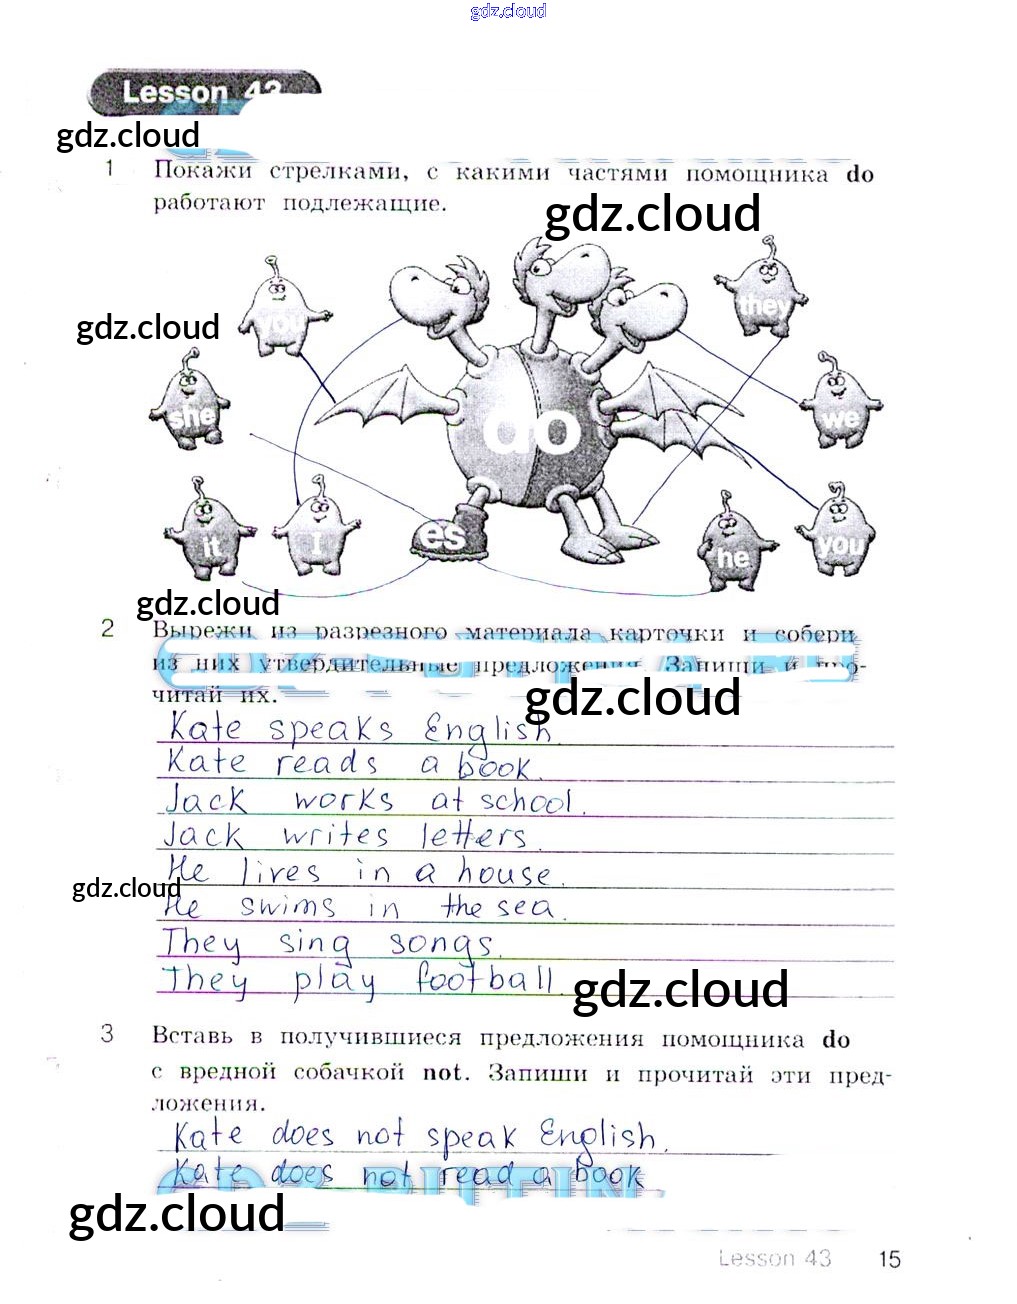 gdz.cloud
Lesson 43
gdz.cloud
1 Покажи стрелками, с какими частями помощника do
работают подлежащие.
gdz.cloud
you
they
gdz.cloud
she
do
we
it
I
es
he
you
gdz.cloud
2 Вырежи из разрезного материала карточки и собери
из них утвердительные предложения. Запиши и про-
читай их.
gdz.cloud
Kate speaks English.
Kate reads a book.
Jack works at school.
Jack writes letters.
He lives in a house.
gdz.cloud
He swims in the sea.
They sing songs.
They play football.
gdz.cloud
3 Вставь в получившиеся предложения помощника do
с вредной собачкой not. Запиши и прочитай эти пред-
ложения.
Kate does not speak English.
Kate does not read a book
gdz.cloud
Lesson 43 15